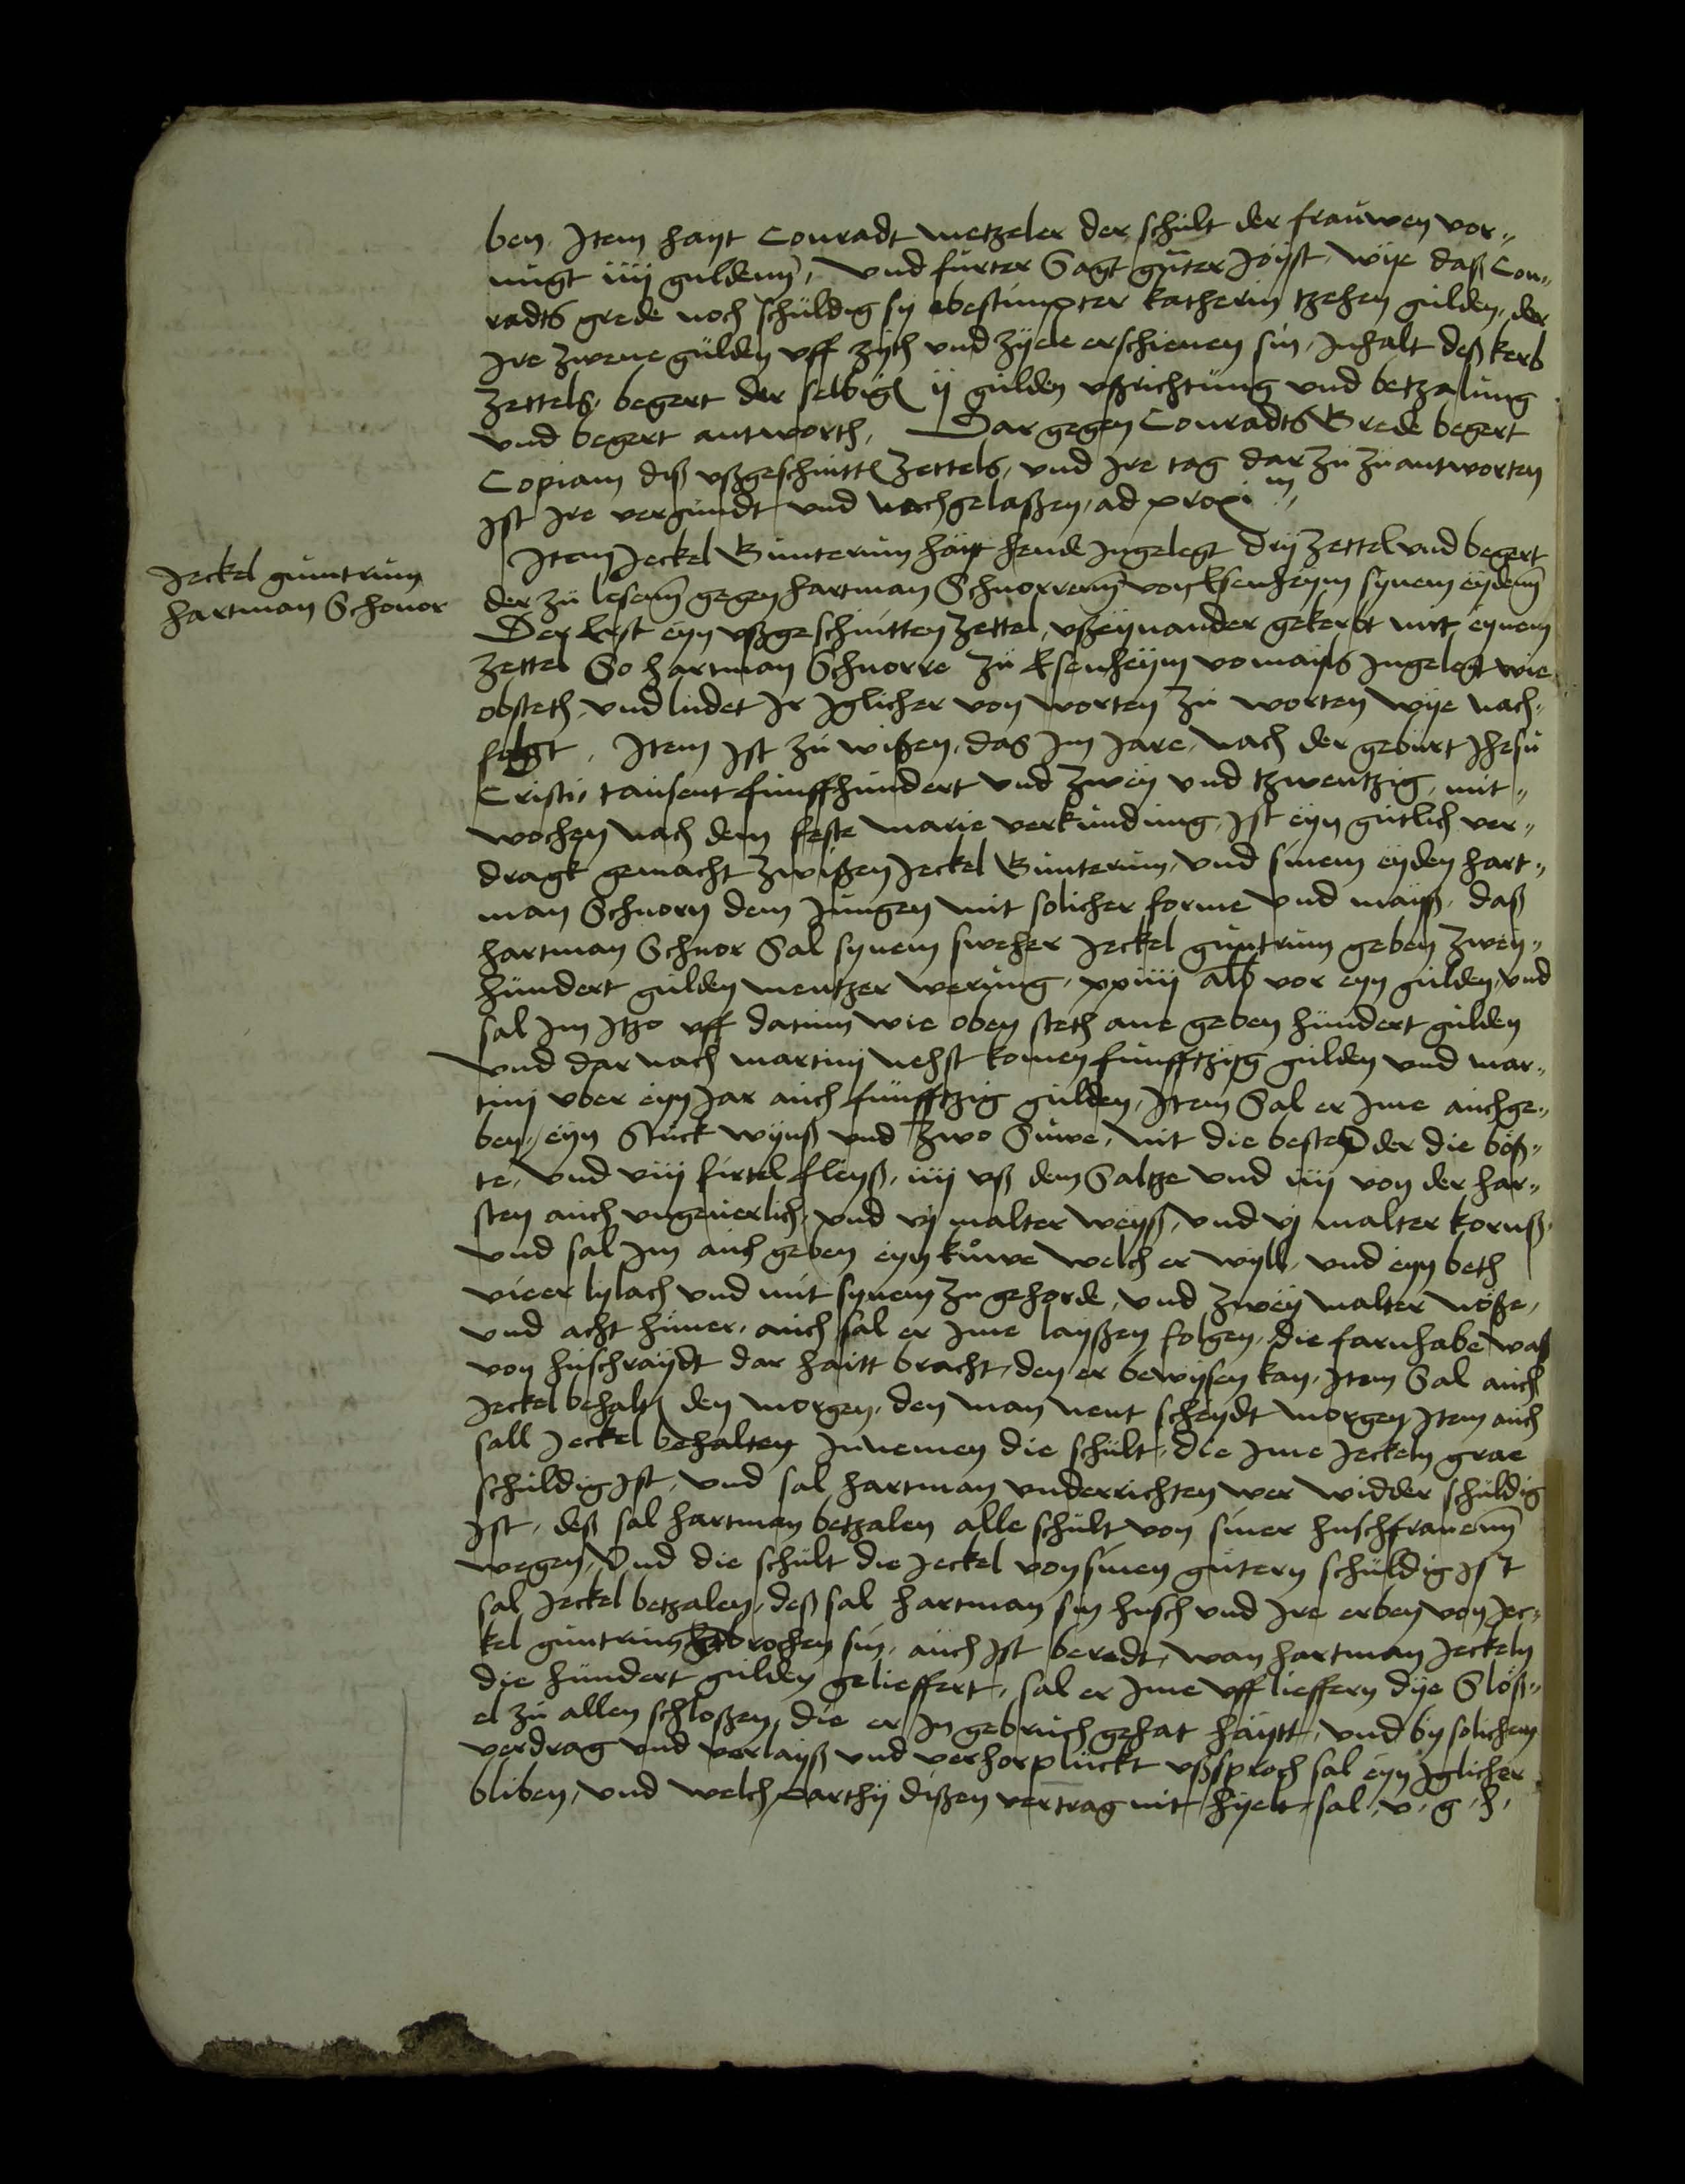 ben. Item hayt Conradt metzeler der schült der fraüwen vor„
nügt iiij guldenn, und fürter Sagt güter Joyst, wye daß Con„
radts grede noch schüldig sy obestimpter katherin tzehen gulden, der
Jre zwene gülden uff zijth und zyele erschienen sin, Jnhalt deß kerb
Zettels, begert der selbig ij gulden ußrichtüng und betzalüng
und begert antworth, Dar gegen Conradts Grede begert
Copiam diß ußgeschnitt Zettels, und Jre tag dar zü zü antworten
Jst Jre vergundt und nachgelaßen, ad proxim
Jeckel guntrum
hartman Schonor
Item Jeckel Gunterum hayt heude Jngelegt drij Zettel und begert
der zü lesenn gegen hartman Schnorrenn von Esenheym synem eydenn
Der Erst eyn ußgeschnitten Zettel, ußeynander gekerbt mit eynem
Zettel So hartman Schnorre zü Esenheym vomayls Jngelegt wie
obsteth, und lüdet Jr Jglicher von worten zü worten wye nach„
folgt, Item Jst zü wißen, das Jm Jare, nach der gebürt Jhesü
Cristi, taüsent fünffhündert und zwey und tzwentzig, mit„
wochen nach dem feste marie verkündüng, Jst eyn gütlich ver„
dragk gemacht zwißen Jeckel Gunterum, und sinem eyden hart„
man Schnorn dem Jüngen mit solicher forme und mayß, daß
hartman Schnor Sal synem sweher Jeckel güntrüm geben zwey„
hündert gülden mentzer werüng, xxiiij alb vor eyn gülden, und
sal Jm Jtzo uff datüm wie oben steth ane geben hündert gülden
und dar nach martini nehst komen fünfftzig gülden und mar„
tinj uber eyn Jar aüch fünfftzig gülden, Item Sal er Jme aüch ge„
ben, eyn Stück wynß und zwo Süwe, nit die besten der die böß„
te, und viij firtel fleyß, iiij uß dem Saltze und iiij von der har„
sten aüch ungeüerlich, und vj malter weyß, und vj malter kornß,
und sal Jm aüch geben eyn küwe welch er wyll, und eyn beth
vieer lylach und mit synem zu gehorde, und zwey malter nöße,
und acht hüner, aüch sal er Jme layßen folgen, die farnhabe waß
von hüschraydt dar haitt bracht, den er bewysen kan, Item Sal aüch
Jeckel behalt den morgen, den man nent scheydt morgen Item aüch
sall Jeckel behalten Jnnemen die schült, die Jme Jeckeln grae
schüldig Jst, und sal hartman underrichten wer widder schüldig
Jst, deß sal hartman betzalen alle schült von siner hüschfrauenn
wegen, Und die schült die Jeckel von sinen gütern schüldig Jst
sal Jeckel betzalen, deß sal hartman sin hüsch und Jre erben von Jec„
kel güntrüm gebrochen sin, aüch Jst beredt, wan hartman Jeckeln
die hündert gülden gelieffert, sal er Jme uff lieffern dye Slöß„
el zü allen schloßen, die er Jn gebrüch gehat haytt, und by solichem
verdrag und verlayß und verhorplückt ußsproch sal eyn Jglicher
bliben, und welch parthy dißen vertrag nit hyelt, sal, u, g, h,